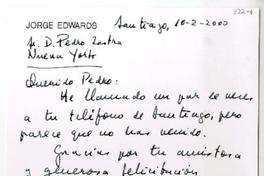 922-4
JORGE EDWARDS Santiago, 10-2-2000
Sr. D. Pedro Lastra
Nueva York
Querido Pedro:
He llamado un par de veces
a tu teléfono de Santiago, pero
parece que no has venido.
Gracias por tu amistosa
y generosa felicitación